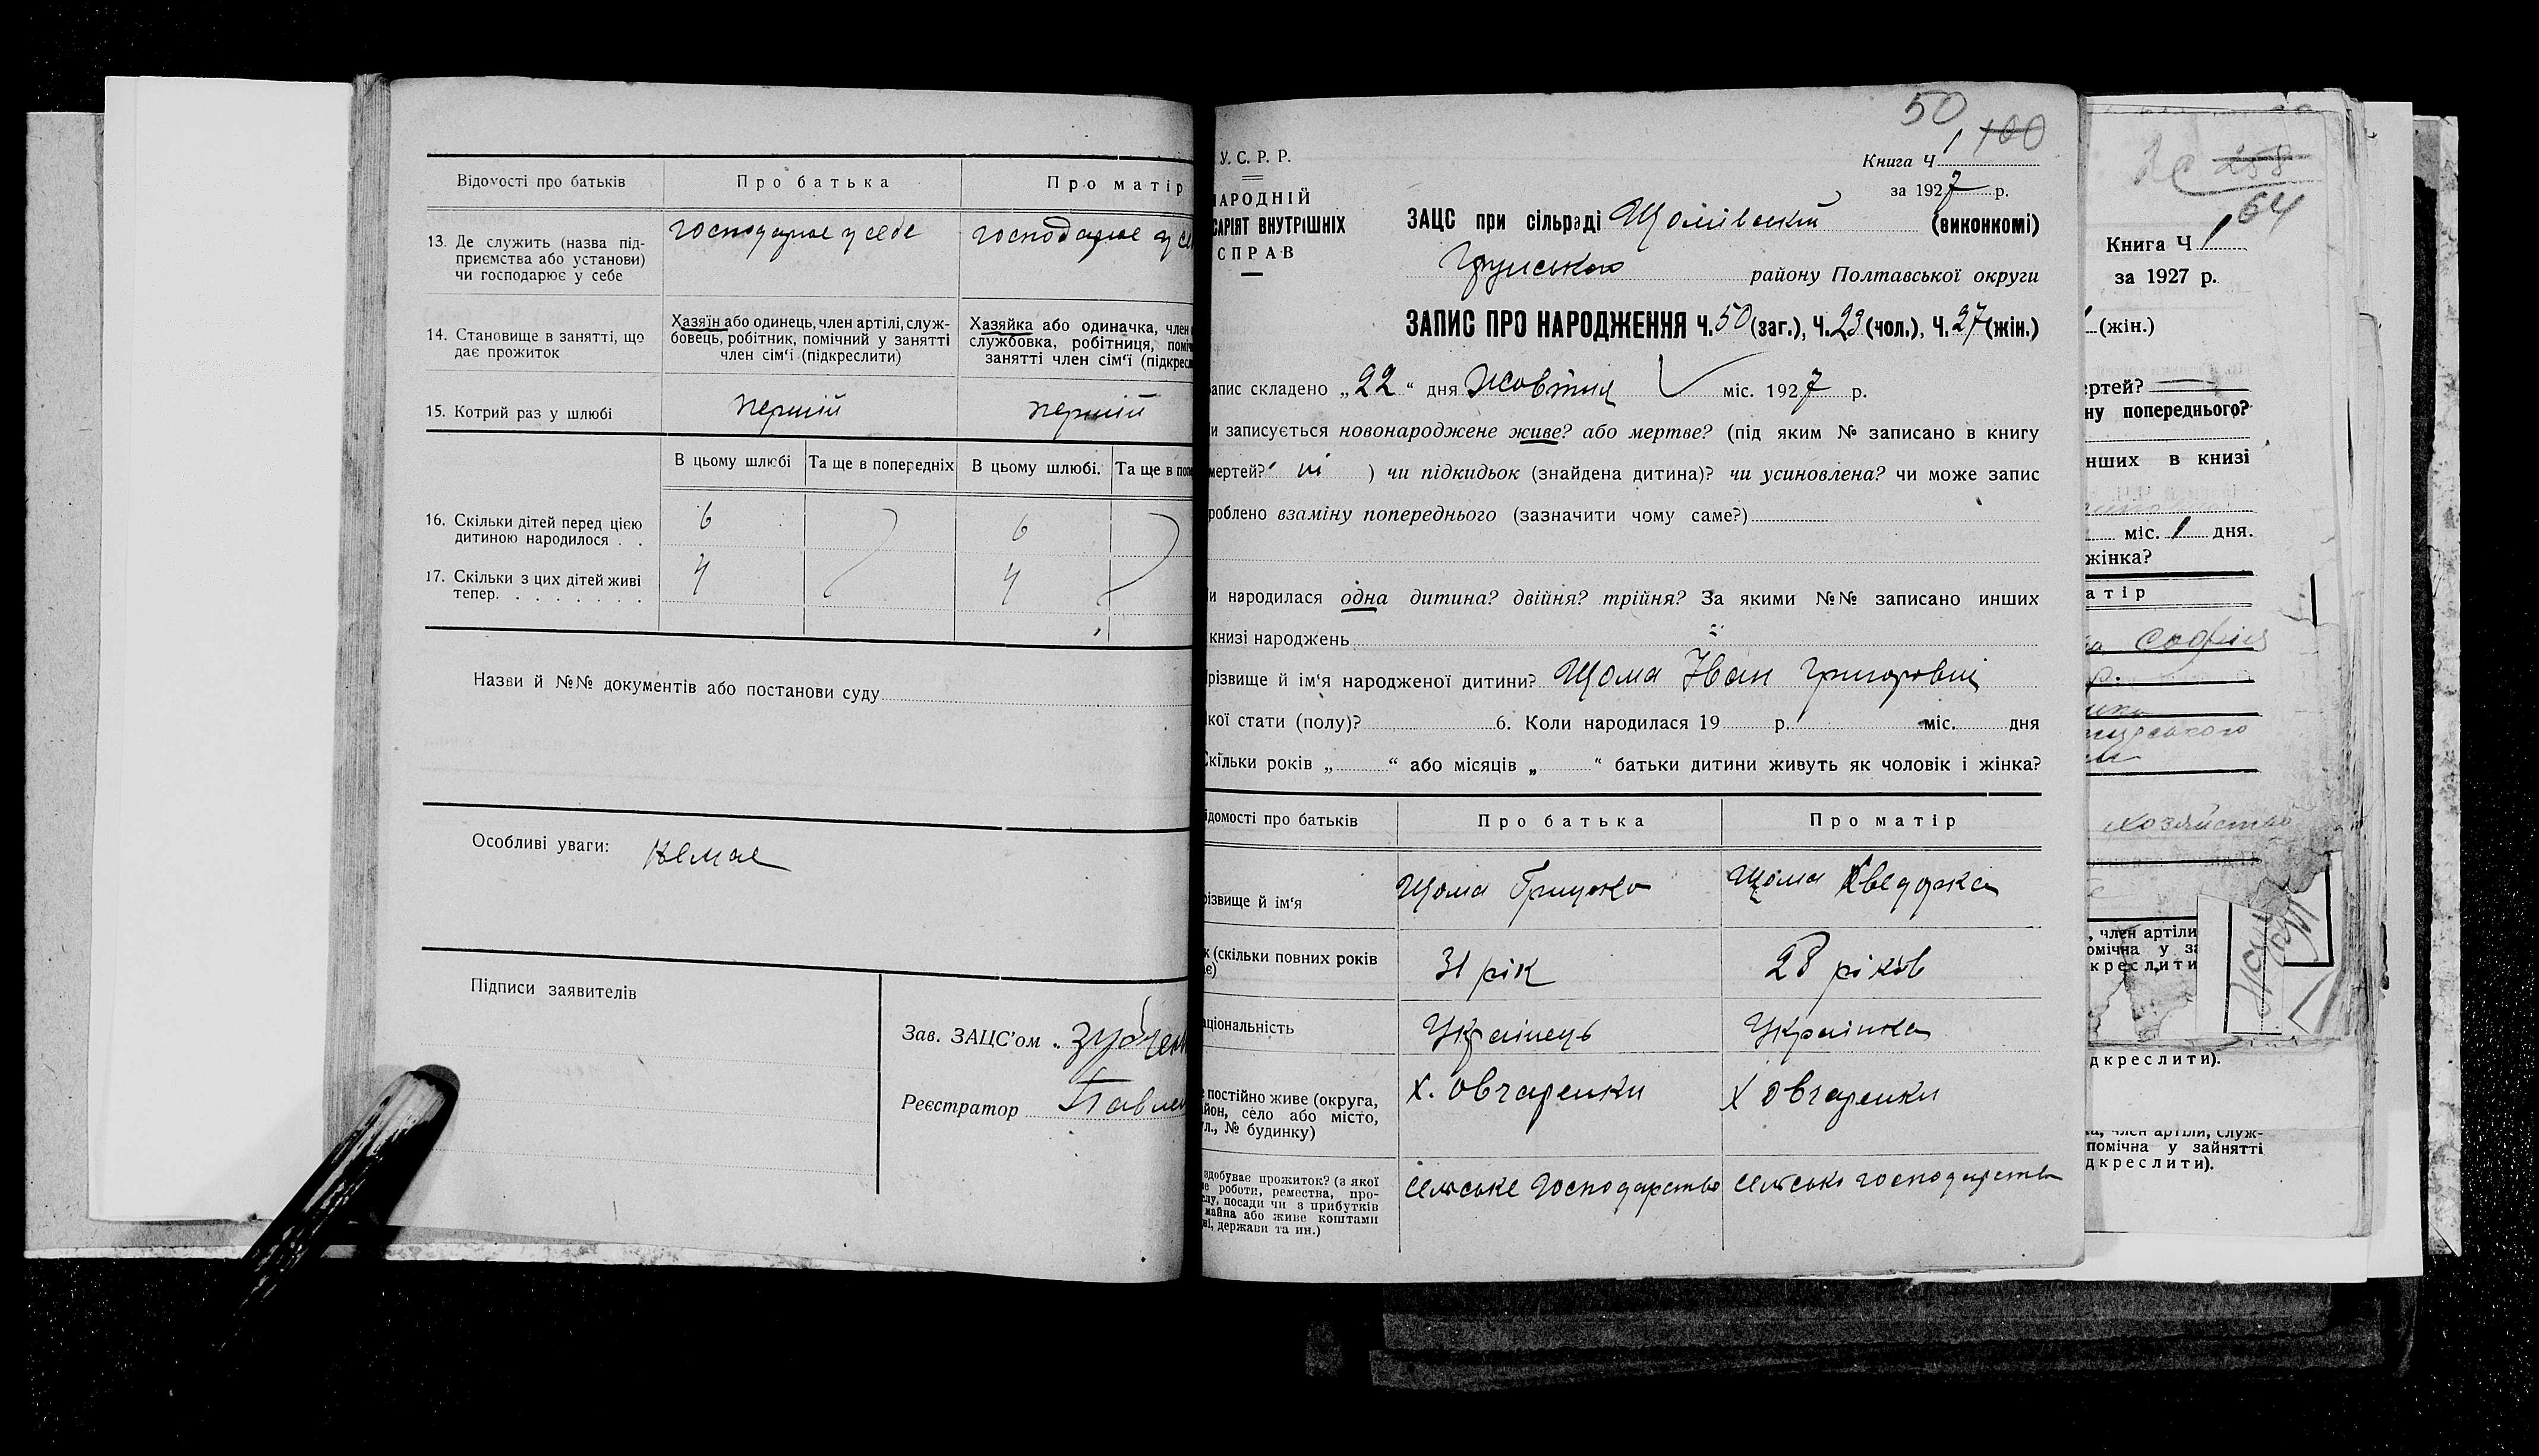 Відомості про батьків Про батька Про матір
13. Де служить (назва під-
приємства або установи)
чи господарює у себе
господарює у себе господарює у се
14. Становище в занятті, що
дає прожиток
Хазяїн або одинець, член артілі, служ-
бовець, робітник, помічний у занятті
член сім'ї (підкреслити)
Хазяйка або одиначка, член
службовка, робітниця, поміч
занятті член сім'ї (підкресл
15. Котрий раз у шлюбі перший перший
В цьому шлюбі Та ще в попередніх В цьому шлюбі. Та ще в поп
16. Скільки дітей перед цією
дитиною народилося . . 6 6
17. Скільки з цих дітей живі
тепер. . . . . . . . 4 4
Назви й №№ документів або постанови суду
Особливі уваги: немає
Підписи заявителів
Зав. ЗАЦС'ом
Реєстратор
50
100
У. С. Р. Р.
Книга Ч 1
за 1927 р.
НАРОДНІЙ
САРІЯТ ВНУТРІШНІХ
СПРАВ
ЗАЦС при сільраді (виконкомі)
району Полтавської округи
ЗАПИС ПРО НАРОДЖЕННЯ Ч. 50 (заг.), Ч. 23 (чол.), Ч. 27 (жін.)
апис складено „22“ дня Жовтня міс. 1927 р.
и записується новонароджене живе? або мертве? (під яким № записано в книгу
мертей? ні ) чи підкидьок (знайдена дитина)? чи усиновлена? чи може запис
роблено взаміну попереднього (зазначити чому саме?)
и народилася одна дитина? двійня? трійня? За якими №№ записано инших
книзі народжень
різвище й ім'я народженої дитини? Щома Іван Григорович
кої стати (полу)? 6. Коли народилася 19 р. міс. дня
Скільки років „ “ або місяців „ “ батьки дитини живуть як чоловік і жінка?
ідомості про батьків Про батька Про матір
різвище й ім'я Щома Грицько Щома Хведорка
к (скільки повних років
є) 31 рік 28 років
аціональність Українець Українка
е постійно живе (округа,
йон, село або місто,
ул., № будинку)
х. Овчаренки х Овчаренки
здобуває прожиток? (з якої
е роботи, ремества, про-
слу, посади чи з прибутків
майна або живе коштами
ні, держави та ин.)
сельське господарство сельське господарство
258
64
Книга Ч 1
за 1927 р.
(жін.)
ертей?
ну попереднього?
нших в книзі
міс. 1 дня.
жінка?
атір
Софія
р.
хозяйство
, член артіли
омічна у за
креслити
дкреслити).
ка, член артіли, служ-
помічна у зайнятті
дкреслити).